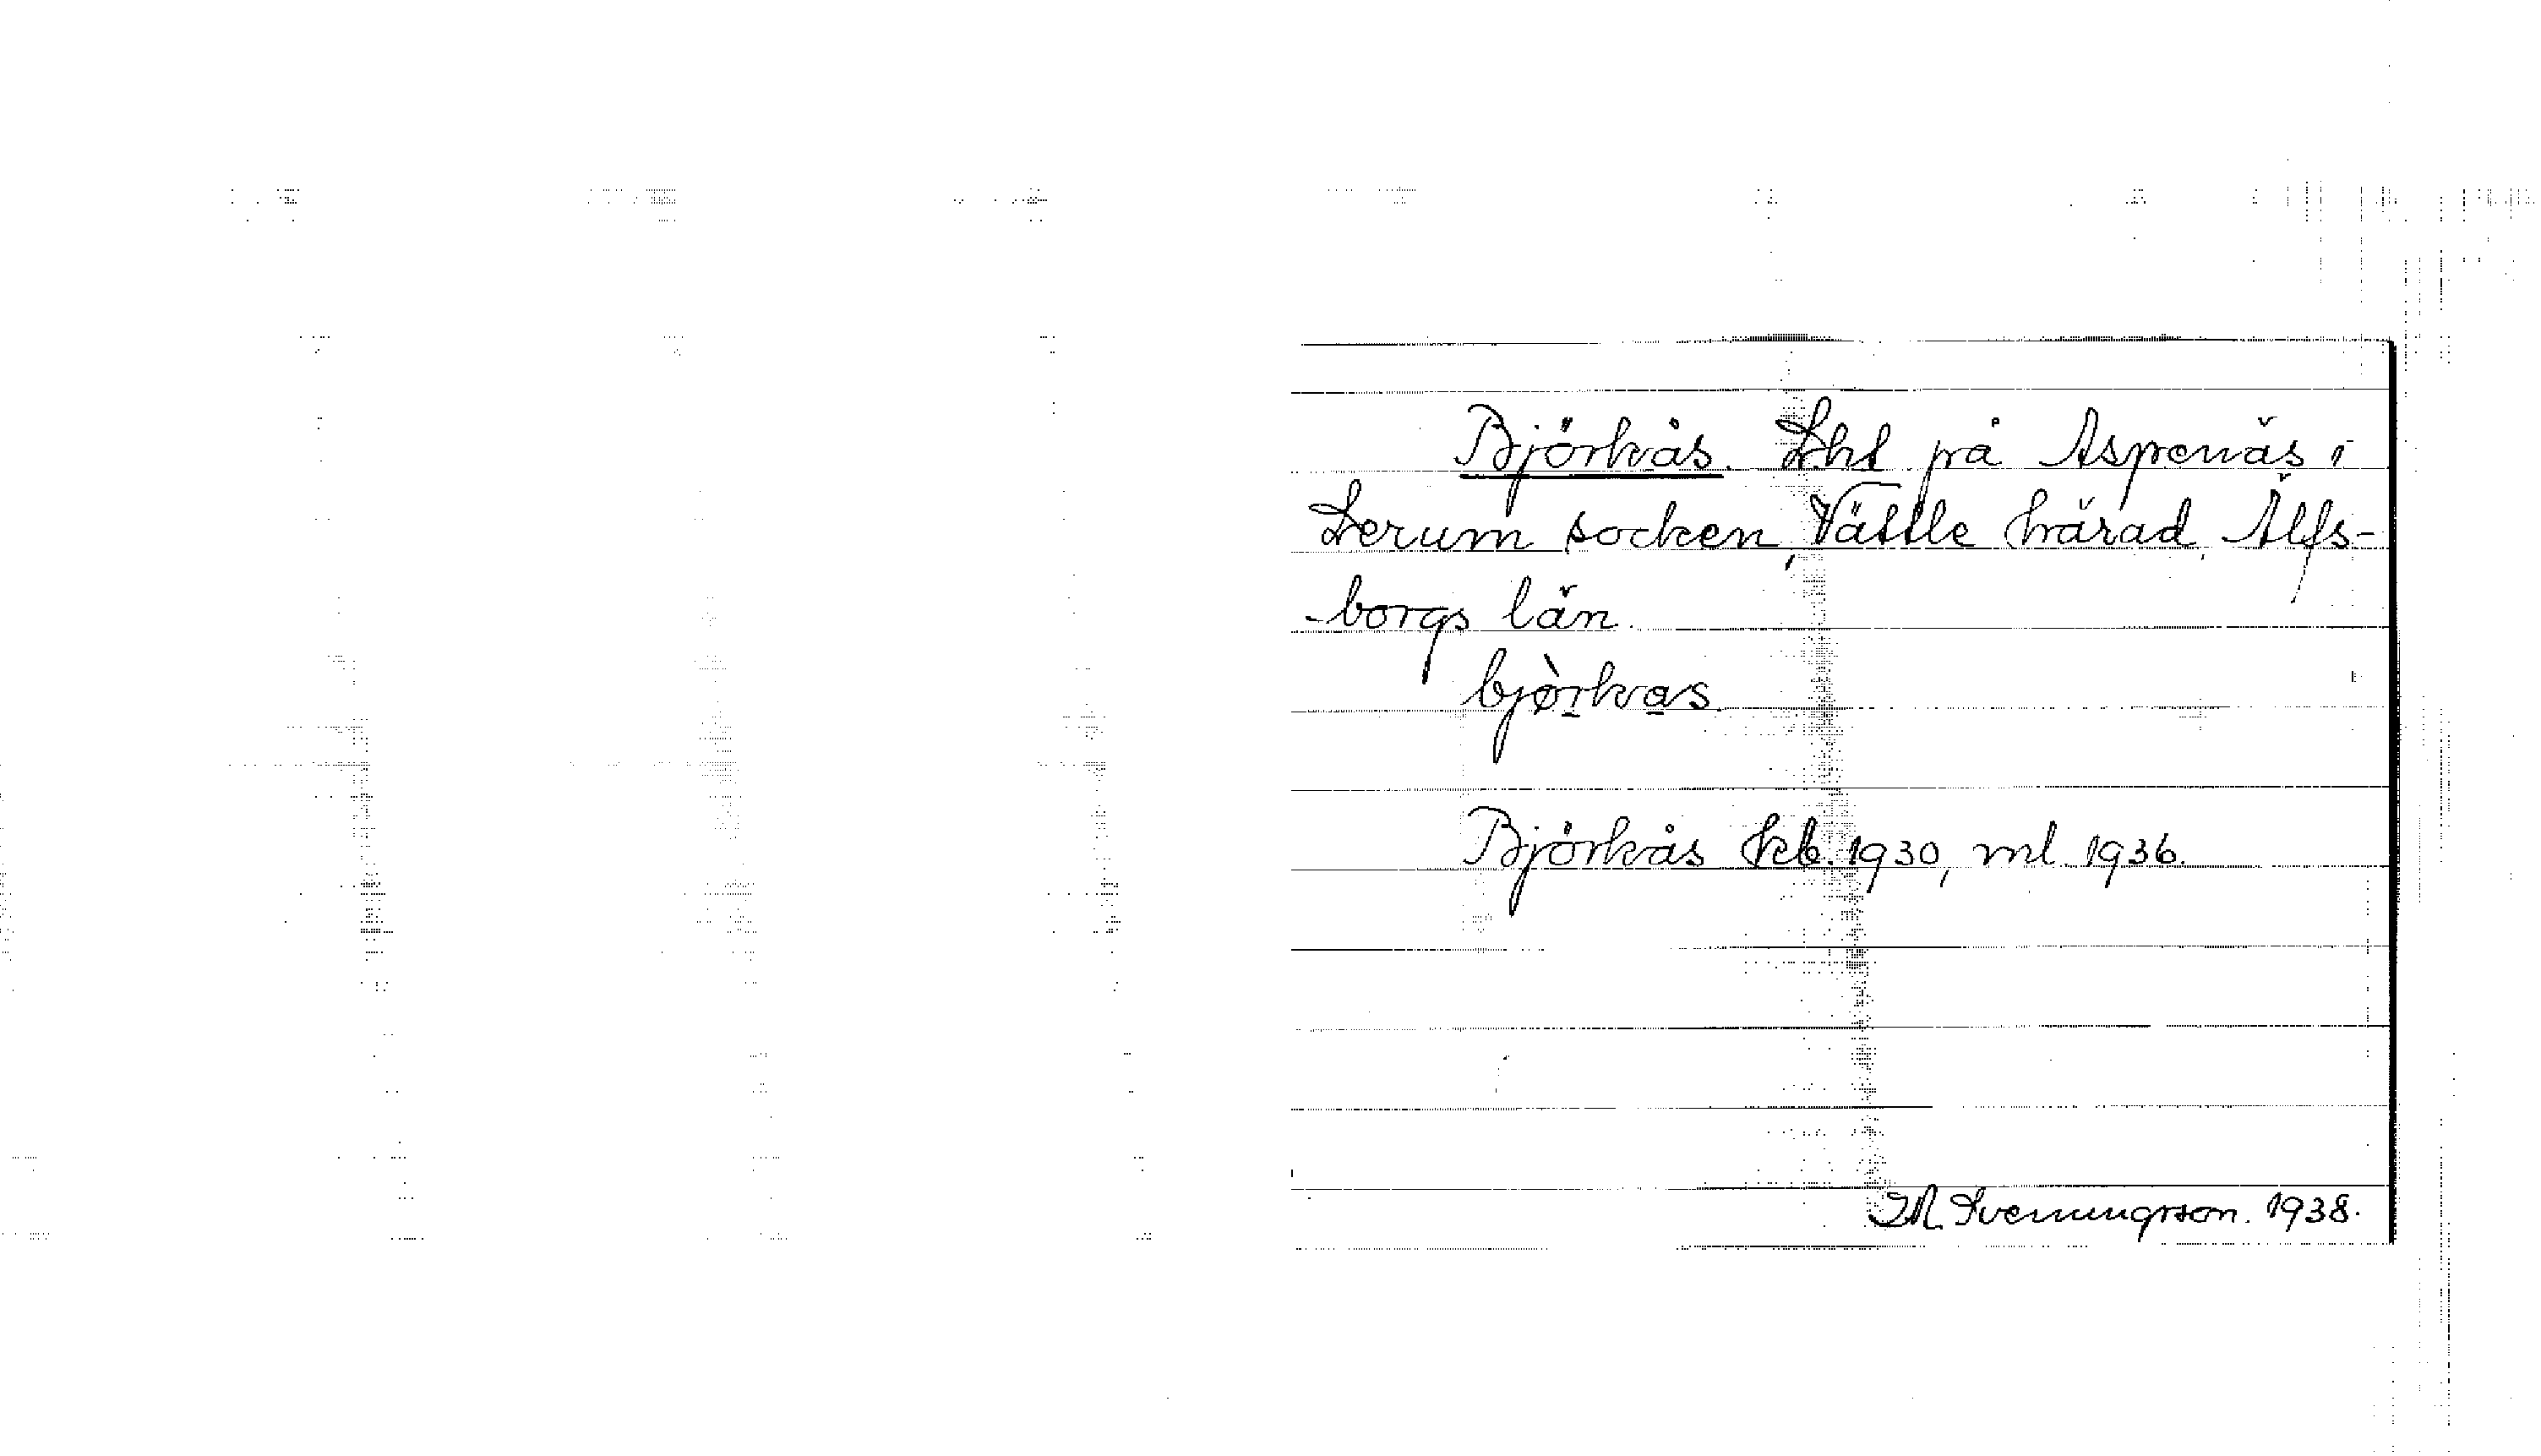 Björkås. Lht på Aspenäs i
Lerum socken, Vättle härad, Älfs-
-borgs län.
bjørkas.
Björkås kb. 1930, ml. 1936.
M. Svenungsson. 1938.